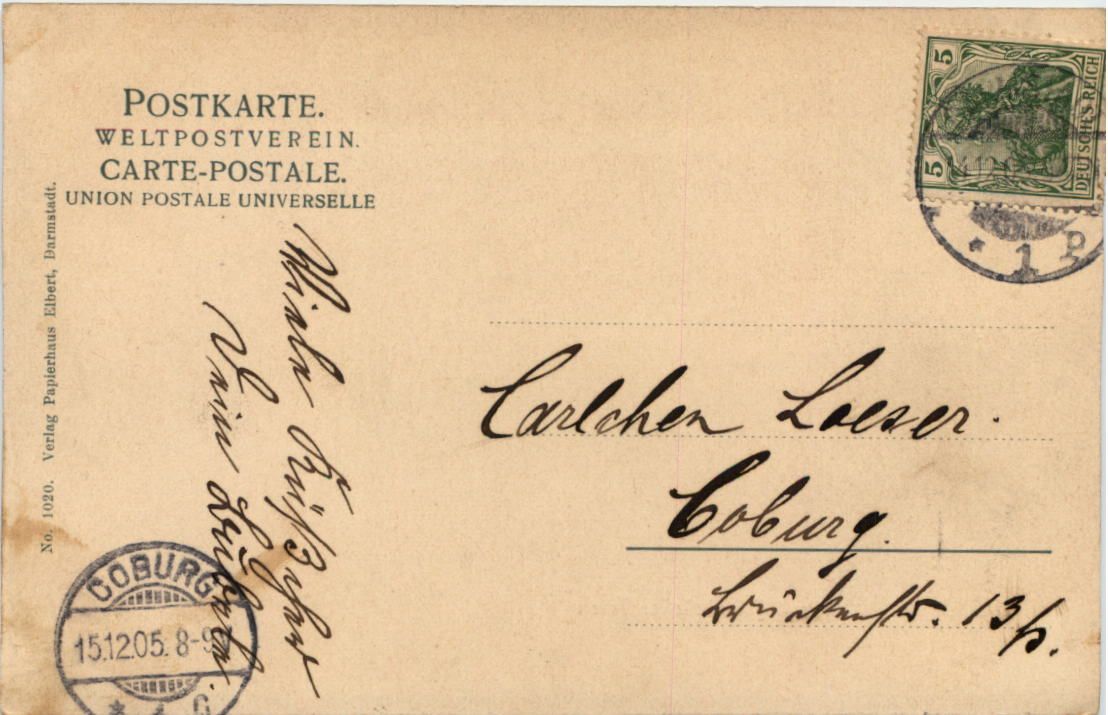 POSTKARTE.
WELTPOSTVEREIN.
CARTE-POSTALE.
UNION POSTALE UNIVERSELLE
No. 1020. Verlag Papierhaus Elbert, Darmstadt.
5
5
DEUTSCHES REICH
12.05
* 1 P
Viele
Carlchen Loeser.
Coburg.
Brückenstr. 13
COBURG
15.12.05. 8-9